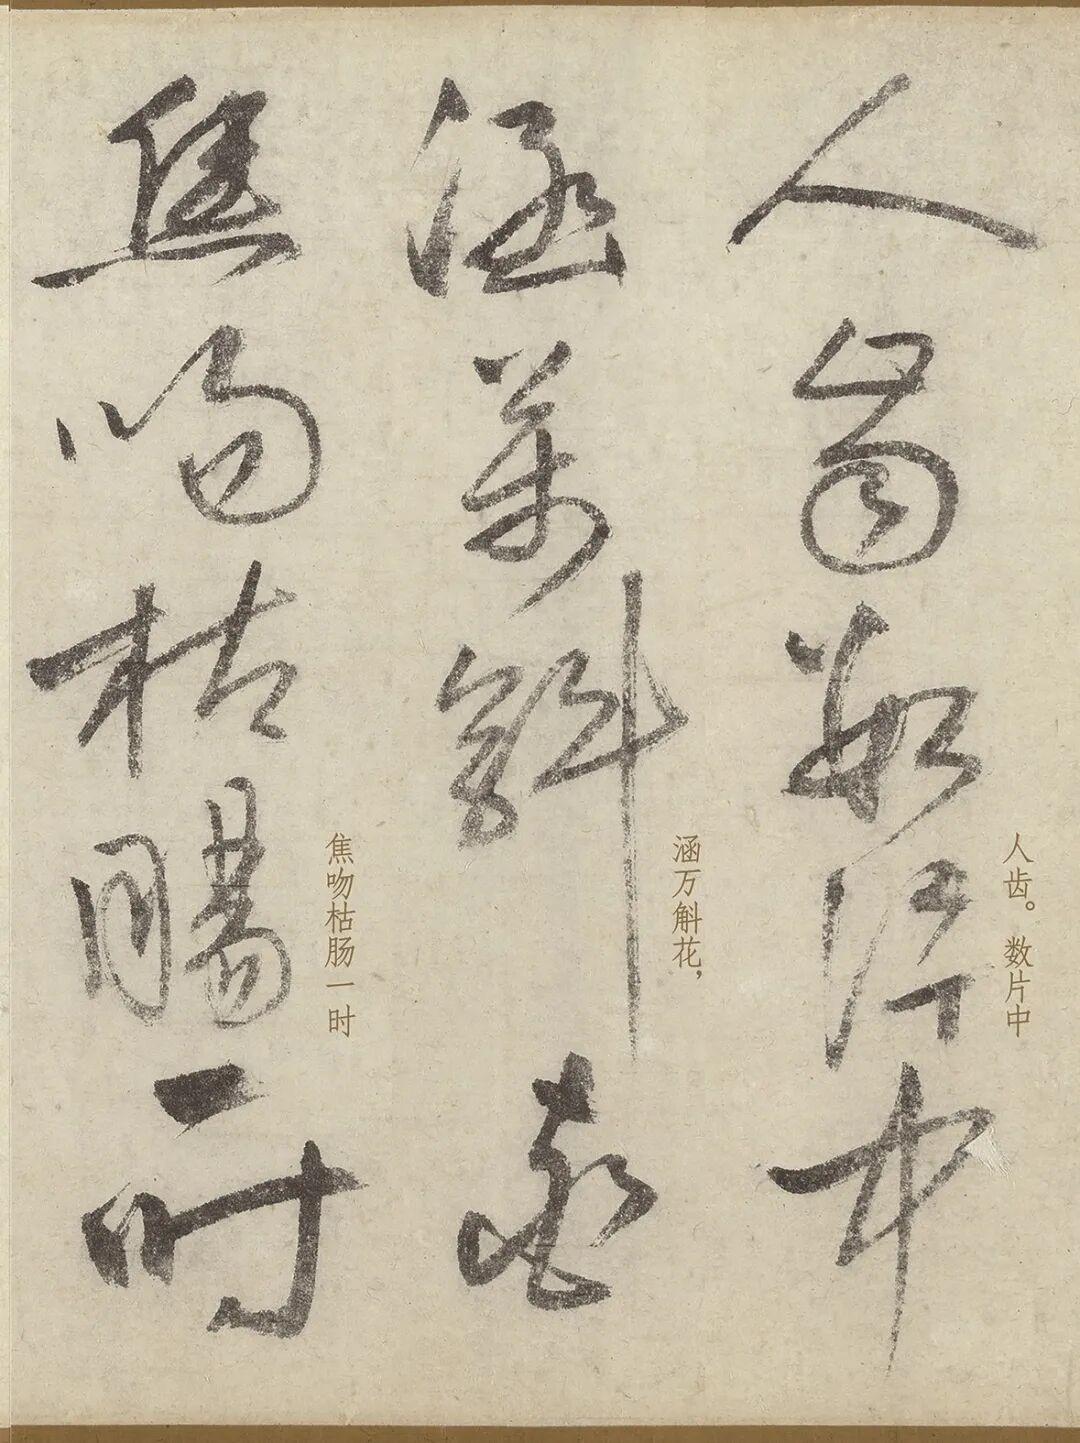 人齒數片中
人齿。数片中
涵萬斛
涵万斛花，
焦吻枯腸一時
焦吻枯肠一时